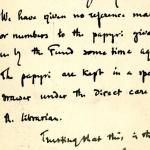 We have given no reference mar
or numbers to the papyri give
by the Fund some time ag
The papyri are kept in a spe
drawer under the direct care
the librarian.
Trusting that this, is th